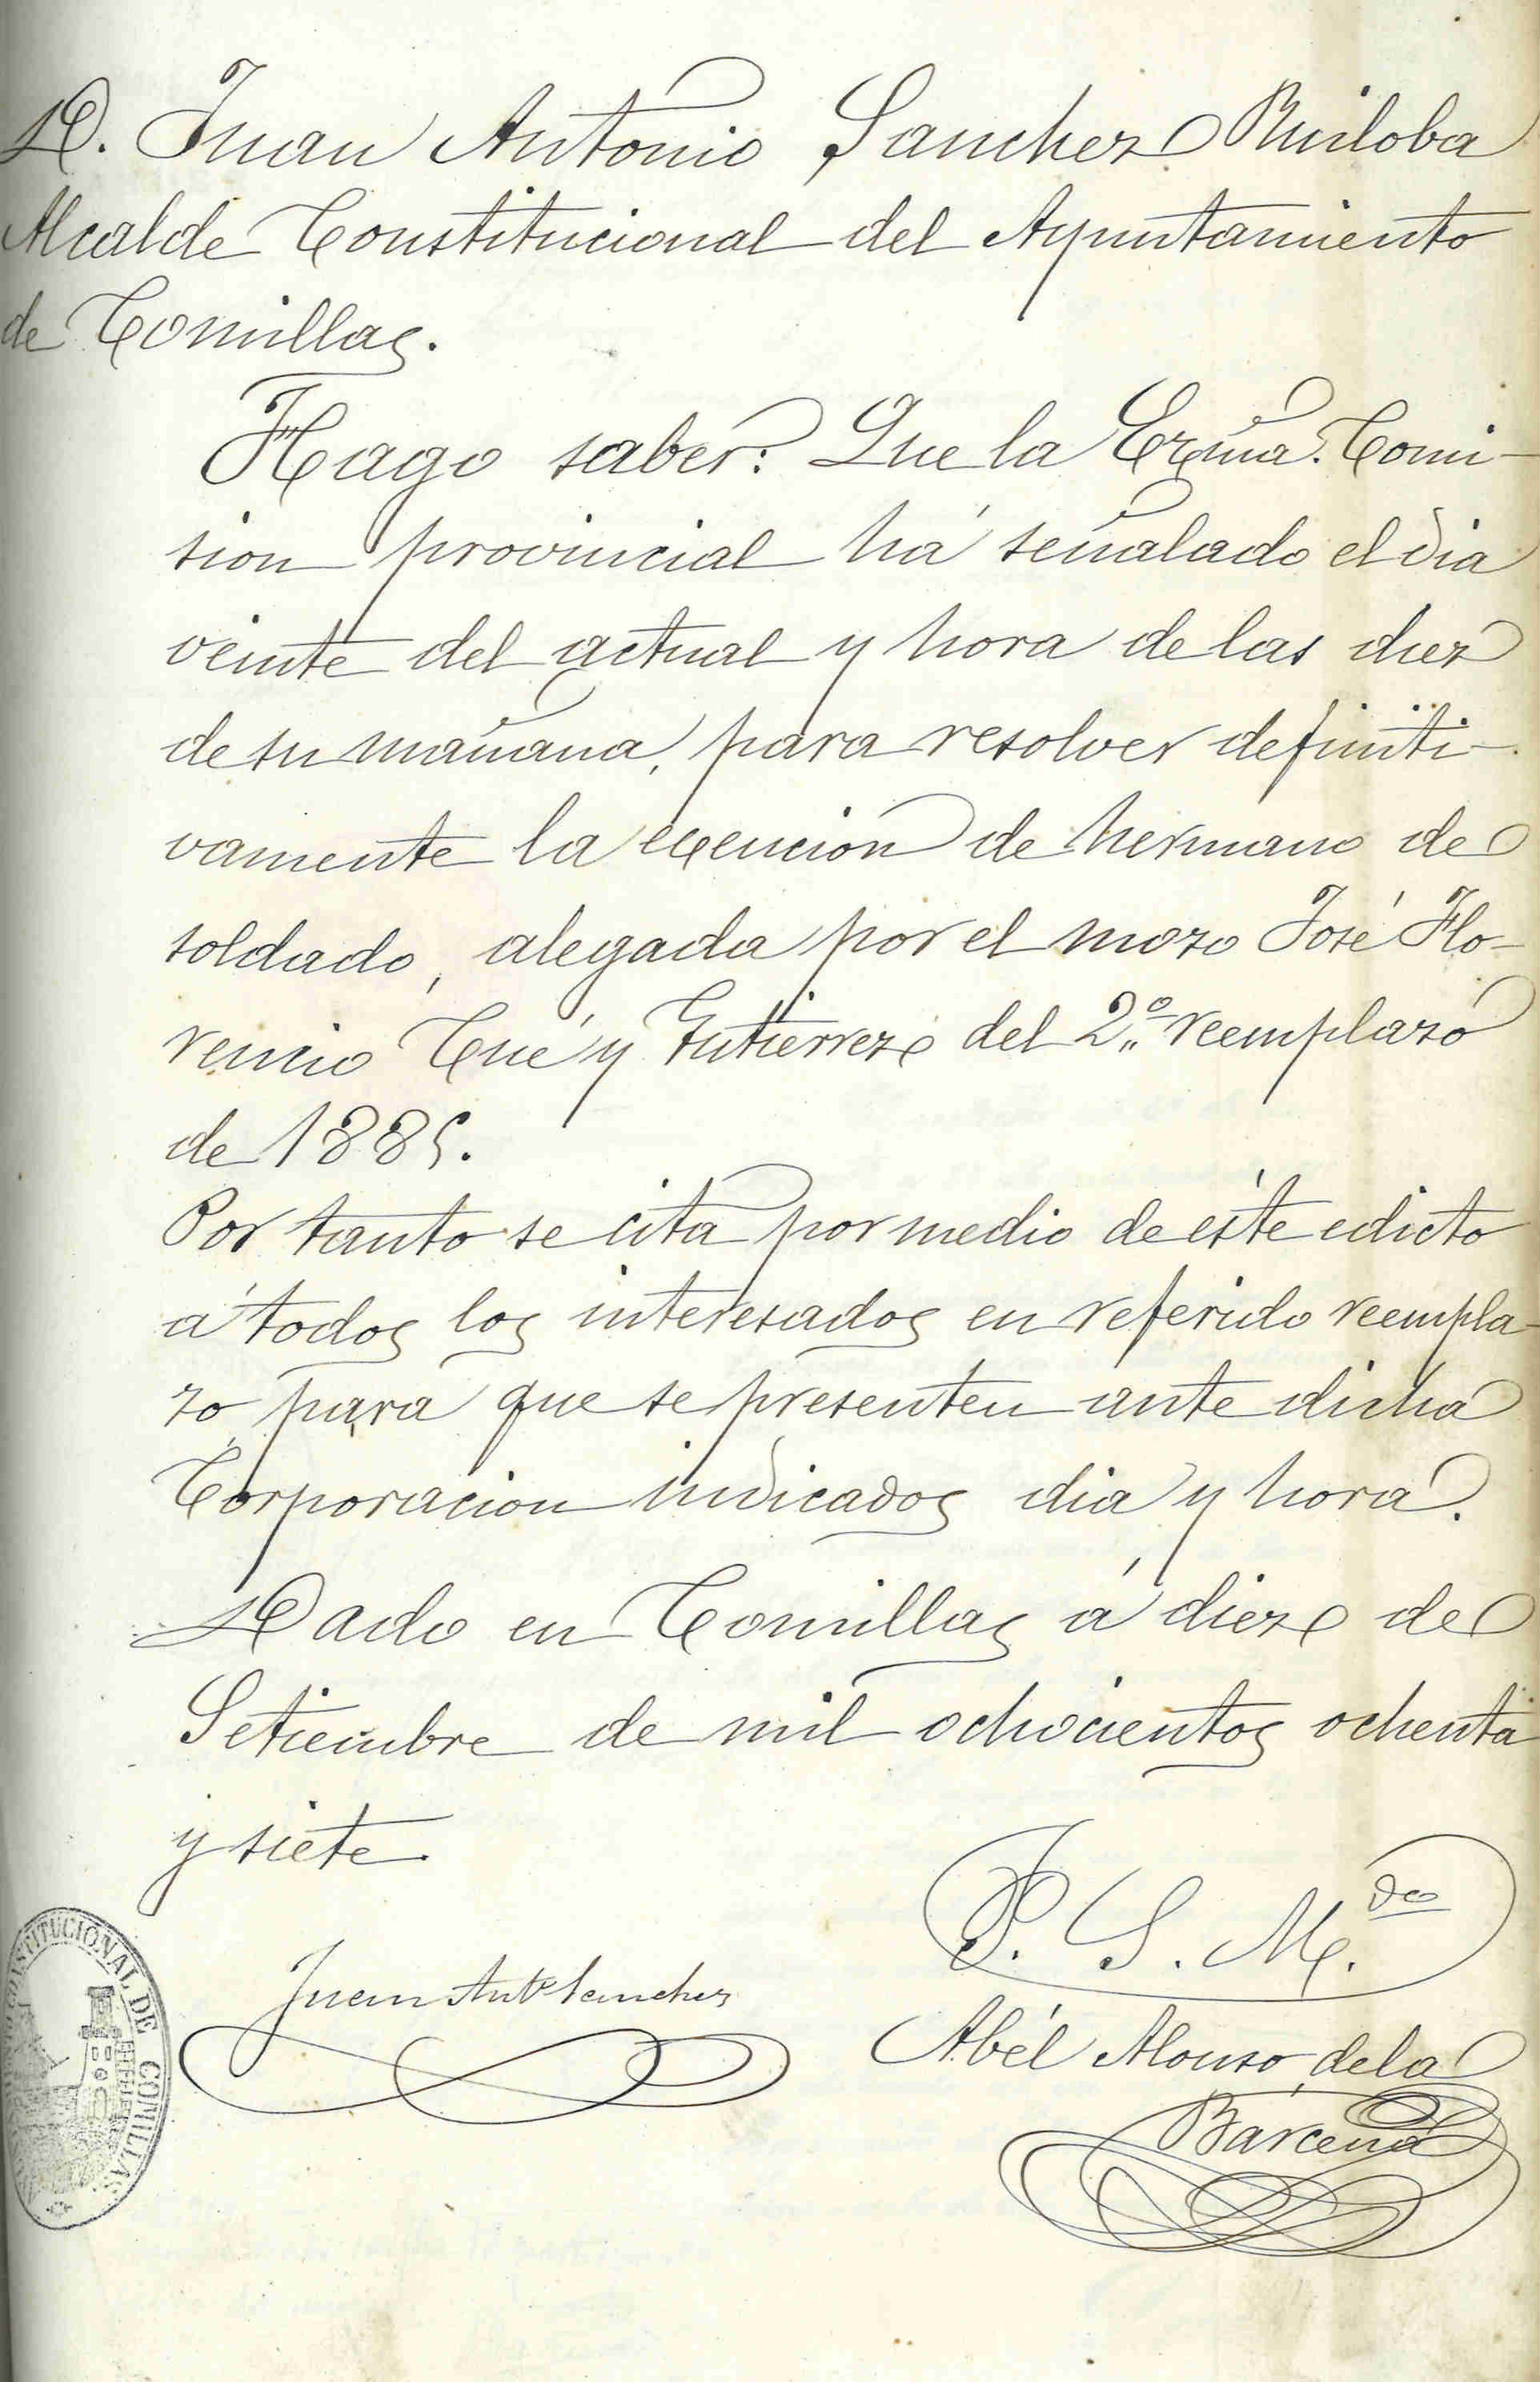 D. Juan Antonio Sanchez Ruiloba
Alcalde Constitucional del Ayuntamiento
de Comillas.
Hago saber: Que la Exma. Comi-
sion provincial há señalado el dia
veinte del actual y hora de las diez
de su mañana, para resolver definiti-
vamente la exencion de hermano de
soldado, alegada por el mozo José Flo-
rencio Cué y Gutierrez del 2º reemplazo
de 1885.
Por tanto se cita por medio de éste edicto
á todos los interesados en referido reempla-
zo para que se presenten ante dicha
Corporacion indicados dia y hora.
Dado en Comillas á diez de
Setiembre de mil ochocientos ochenta
y siete.
P. S. M.do
Juan Antº Sanchez
Abél Alonso de la
Bárcena
CONSTITUCIONAL DE COMILLAS